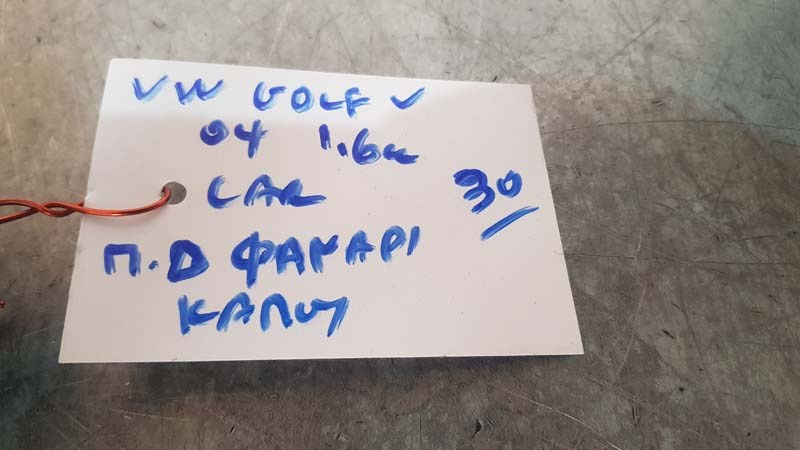 VW GOLF V
04 1.6cc
CAR 30
Π.D ΦΑΝΑΡΙ